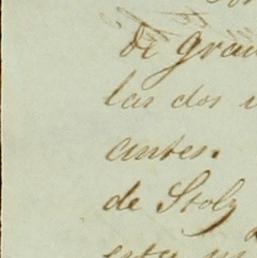 de gran
las dos
antes.
de Stolz
esta